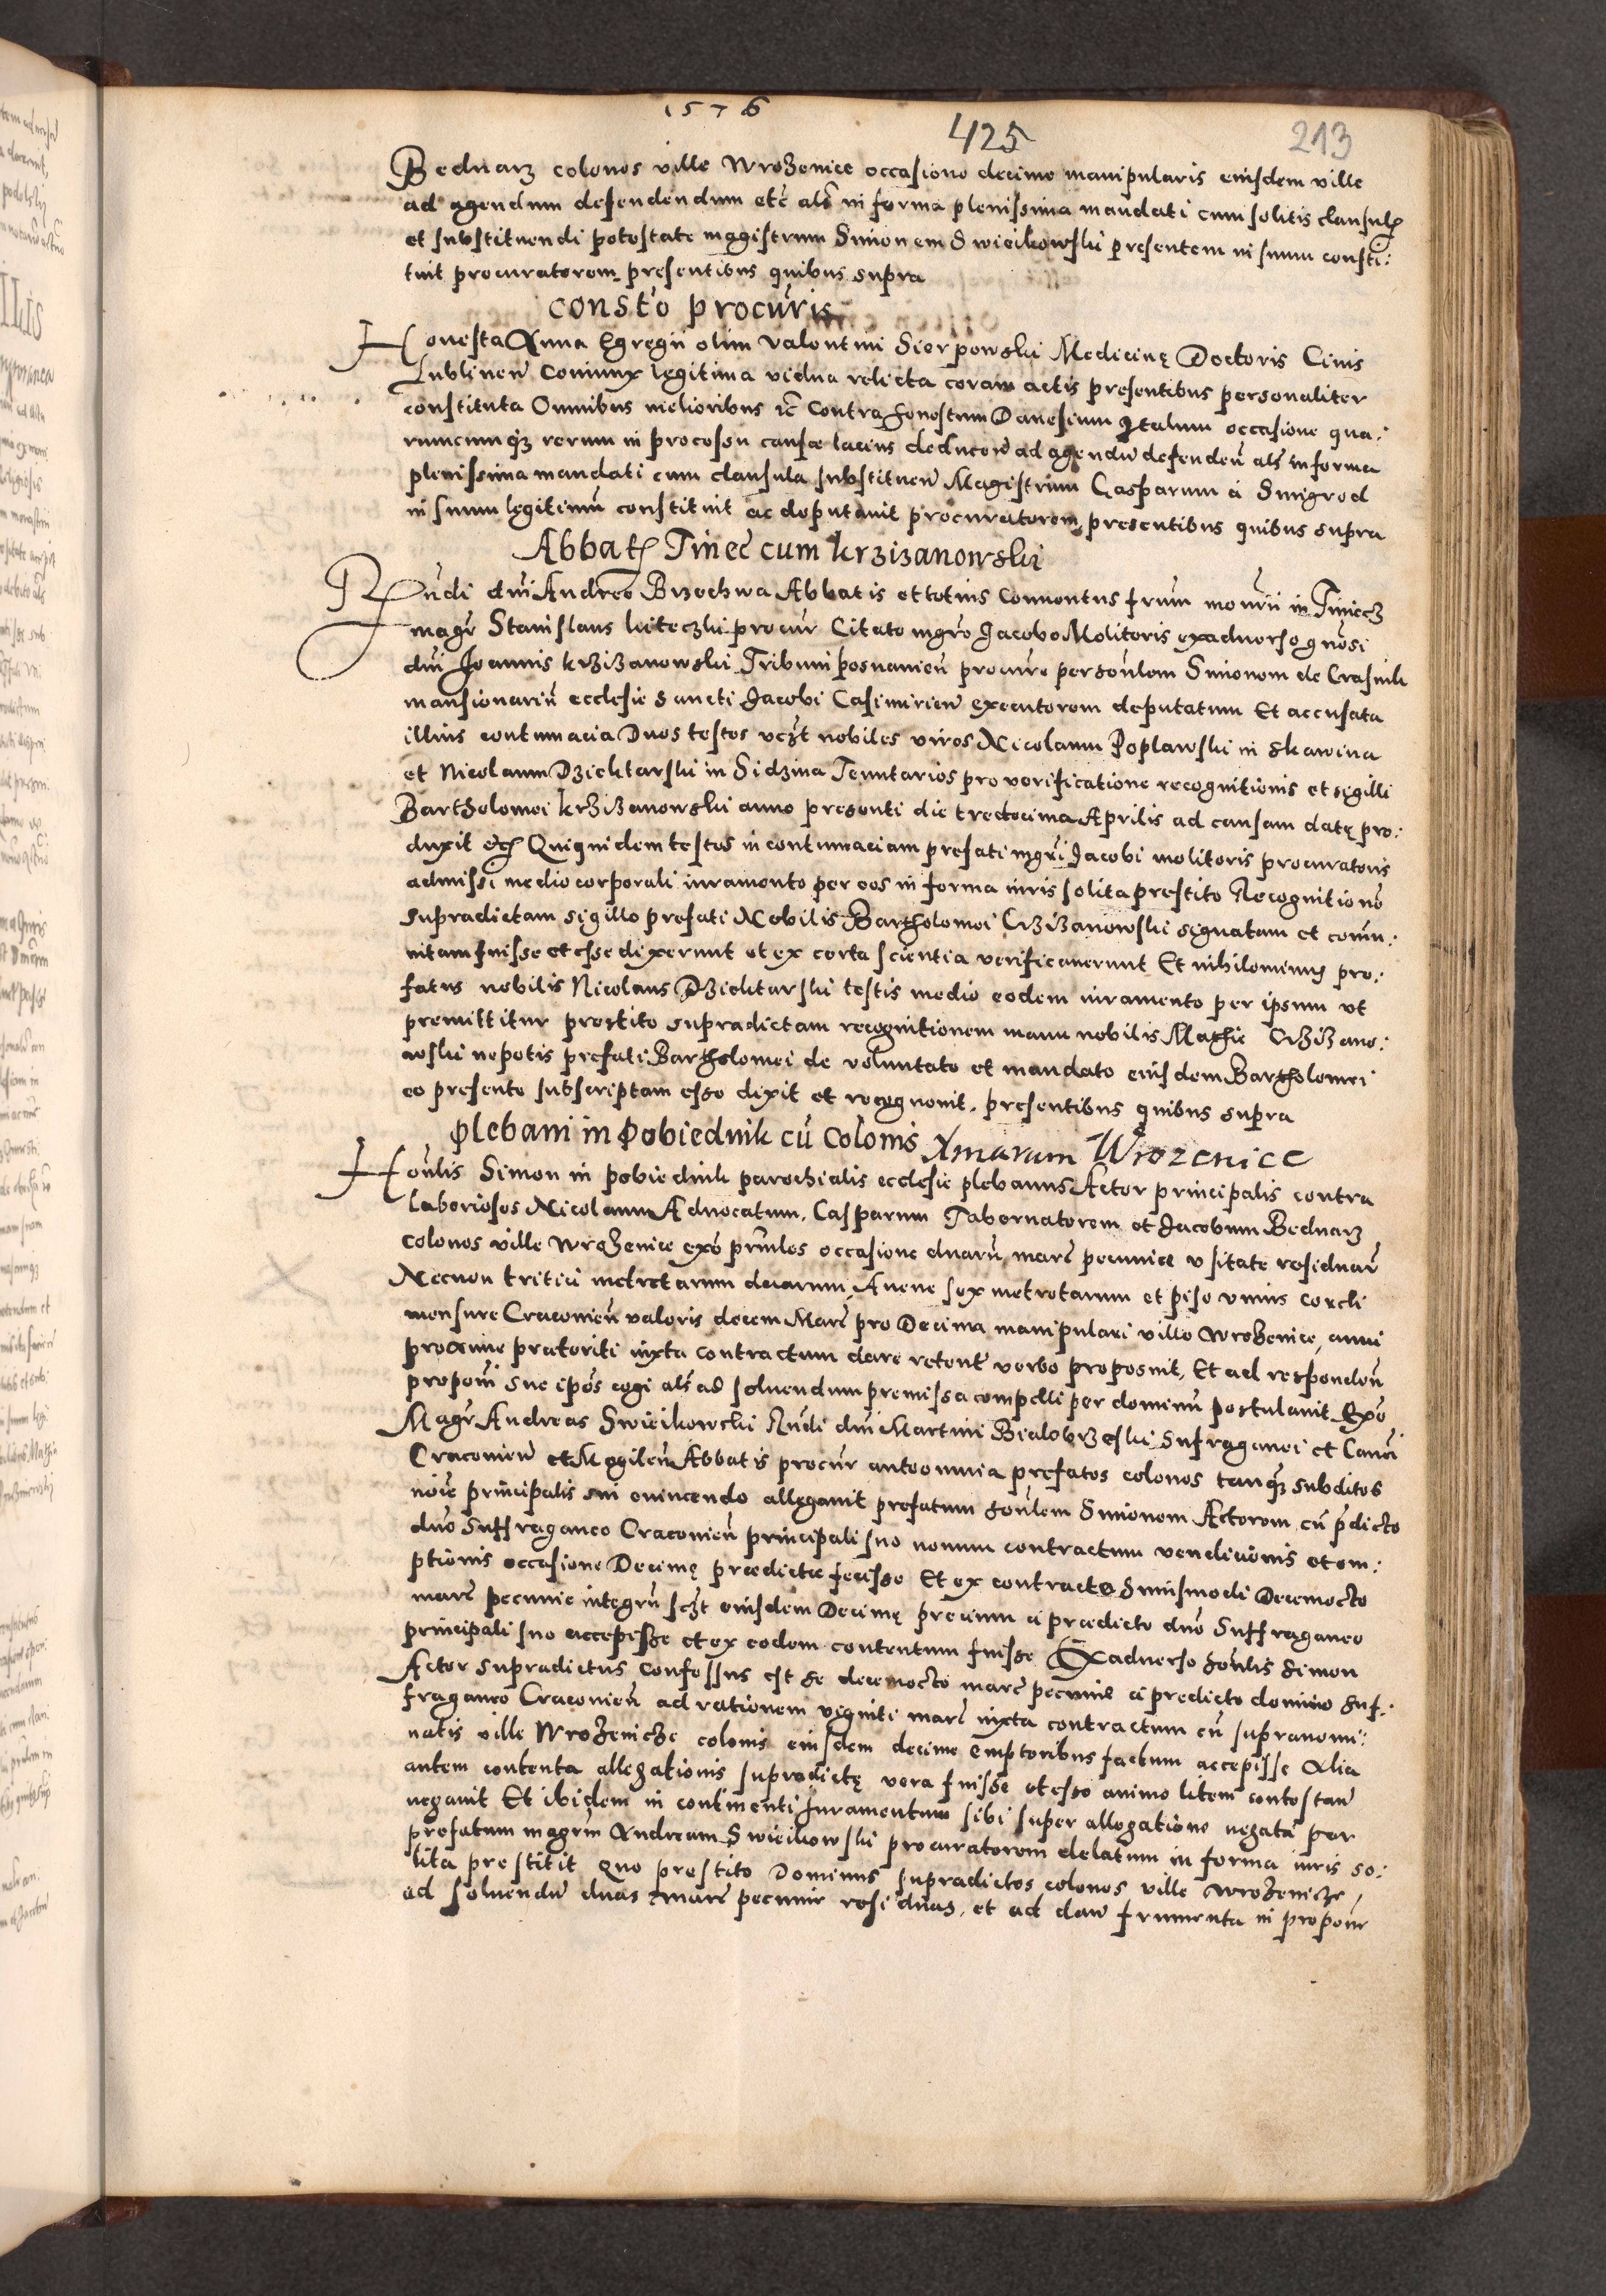 1576
425
213
Bednarz colonos ville Wrozenice occasione decime manipularis eiusdem ville
ad agendum defendendum etc als in forma plenissima mandati cum solitis clausulis
et substituendi potestate magistrum Simonem Swieikowski presentem in suum consti:
tuit procuratorem presentibus quibus supra
Consto procuris
Honesta Anna Egregii olim Valentini Sierpowski Medicinę Doctoris Civis
Lublinen Coniunx legitima vidua relicta coram actis presentibus personaliter
constituta Omnibus melioribus ic Contra honestum Danesium Italum occasione qua:
rumcumqz rerum in processu causæ latius deducen ad agendu defenden als in forma
plenissima mandati cum clausula substituen Magistrum Gasparum á Smigrod
in suum legitimu constituit ac deputauit procuratorem presentibus quibus supra
Abbatis Tinec cum krzizanowski
Rundi dni Andreę Brzechwa Abbatis et totius Conuentus frum monrii in Tiniecz
magr Stanislaus kiteczki procur Citato mgro Jacobo Molitoris exaduerso gnosi
dni Joannis krzizanowski Tribuni posnanien procure personlem Simonem de Crasnik
mansionariu ecclesie Sancti Jacobi Casimirien executorem deputatum Et accusata
illius contumacia Duos testes vczt nobiles viros Nicolaum Poplawski in Skawina
et Nicolaum Dziektarski in Sidzina Tenutarios pro verificatione recognitionis et sigilli
Bartholomei krzizanowski anno presenti die tredecima Aprilis ad causam datę pro:
duxit etc Quiquidem testes in contumaciam prefati mgri Jacobi molitoris procuratoris
admissi medio corporali iuramento per eos in forma iuris solita prestito Recognitione
supradictam sigillo prefati Nobilis Bartholomei Crzizanowski signatam et comu:
nitam fuisse et esse dixerunt et ex certa scientia verificauerunt Et nihilominus pre:
fatus nobilis Nicolaus Dziektarski testis medio eodem iuramento per ipsum ut
premittitur prestito supradictam recognitionem manu nobilis Mathie Crzizano:
wski nepotis prefati Bartholomei de voluntate et mandato eiusdem Bartholomei
eo presente subscriptam esse dixit et recognouit, presentibus quibus supra
Plebani in Pobiednik cu Colonis Xmarum Wrozenice
Honlis Simon in pobiednik parochialis ecclesie plebanus Actor principalis contra
laboriosos Nicolaum Aduocatum, Casparum Tabernatorem et Jacobum Bednarz
colonos ville Wrozenice exo prnles occasione duaru marc pecunie usitate residuar
Necnon tritici metretarum duarum, Auene sex metretarum et piso unius corcli
mensure Cracouien valoris decem Marc pro Decima manipulari ville Wrozenice, anni
proxime preteriti iuxta contractum dare retent verbo proposuit, Et ad responden
proponi sue ipos cogi als ad soluendum premissa compelli per dominu postulauit Exo
Magr Andreas Swieikowski Rndi dni Martini Bialobrzeski Sufraganei et Canci
Cracouien et Mogilen Abbatis procur ante omnia prefatos colonos tanqz subditos
noie principalis sui euincendo allegauit prefatum honlem Simonem Actorem cu pdicto
dno Suffraganeo Cracouien principali suo nouum contractum venditionis et em:
ptionis occasione Decimę prædicte fecisse Et ex contractu huiusmodi Decemocto
marc pecunie integru sczt eiusdem Decimę precium á prædicto dno Suffraganeo
principali suo accepisse et ex eodem contentum fuisse Exaduerso honlis Simon
Actor supradictus confessus est se decemocto marc pecunie á predicto domino Suf:
fraganeo Cracouien ad rationem viginti marc iuxta contractum cu supranomi:
natis ville Wrozenicze colonis eiusdem decime emptoribus factum accepisse Alia
autem contenta allegationis supradictę vera fuisse et esse animo litem contestan
negauit Et ibidem in continenti Juramentum sibi super allegatione negata per
prefatum magrm Andream Swieikowski procuratorem delatum in forma iuris so:
lita prestitit Quo prestito Dominus supradictos colonos ville Wrozenicze,
ad soluendu duas marc pecunie residuas, et ad dan frumenta in propoue